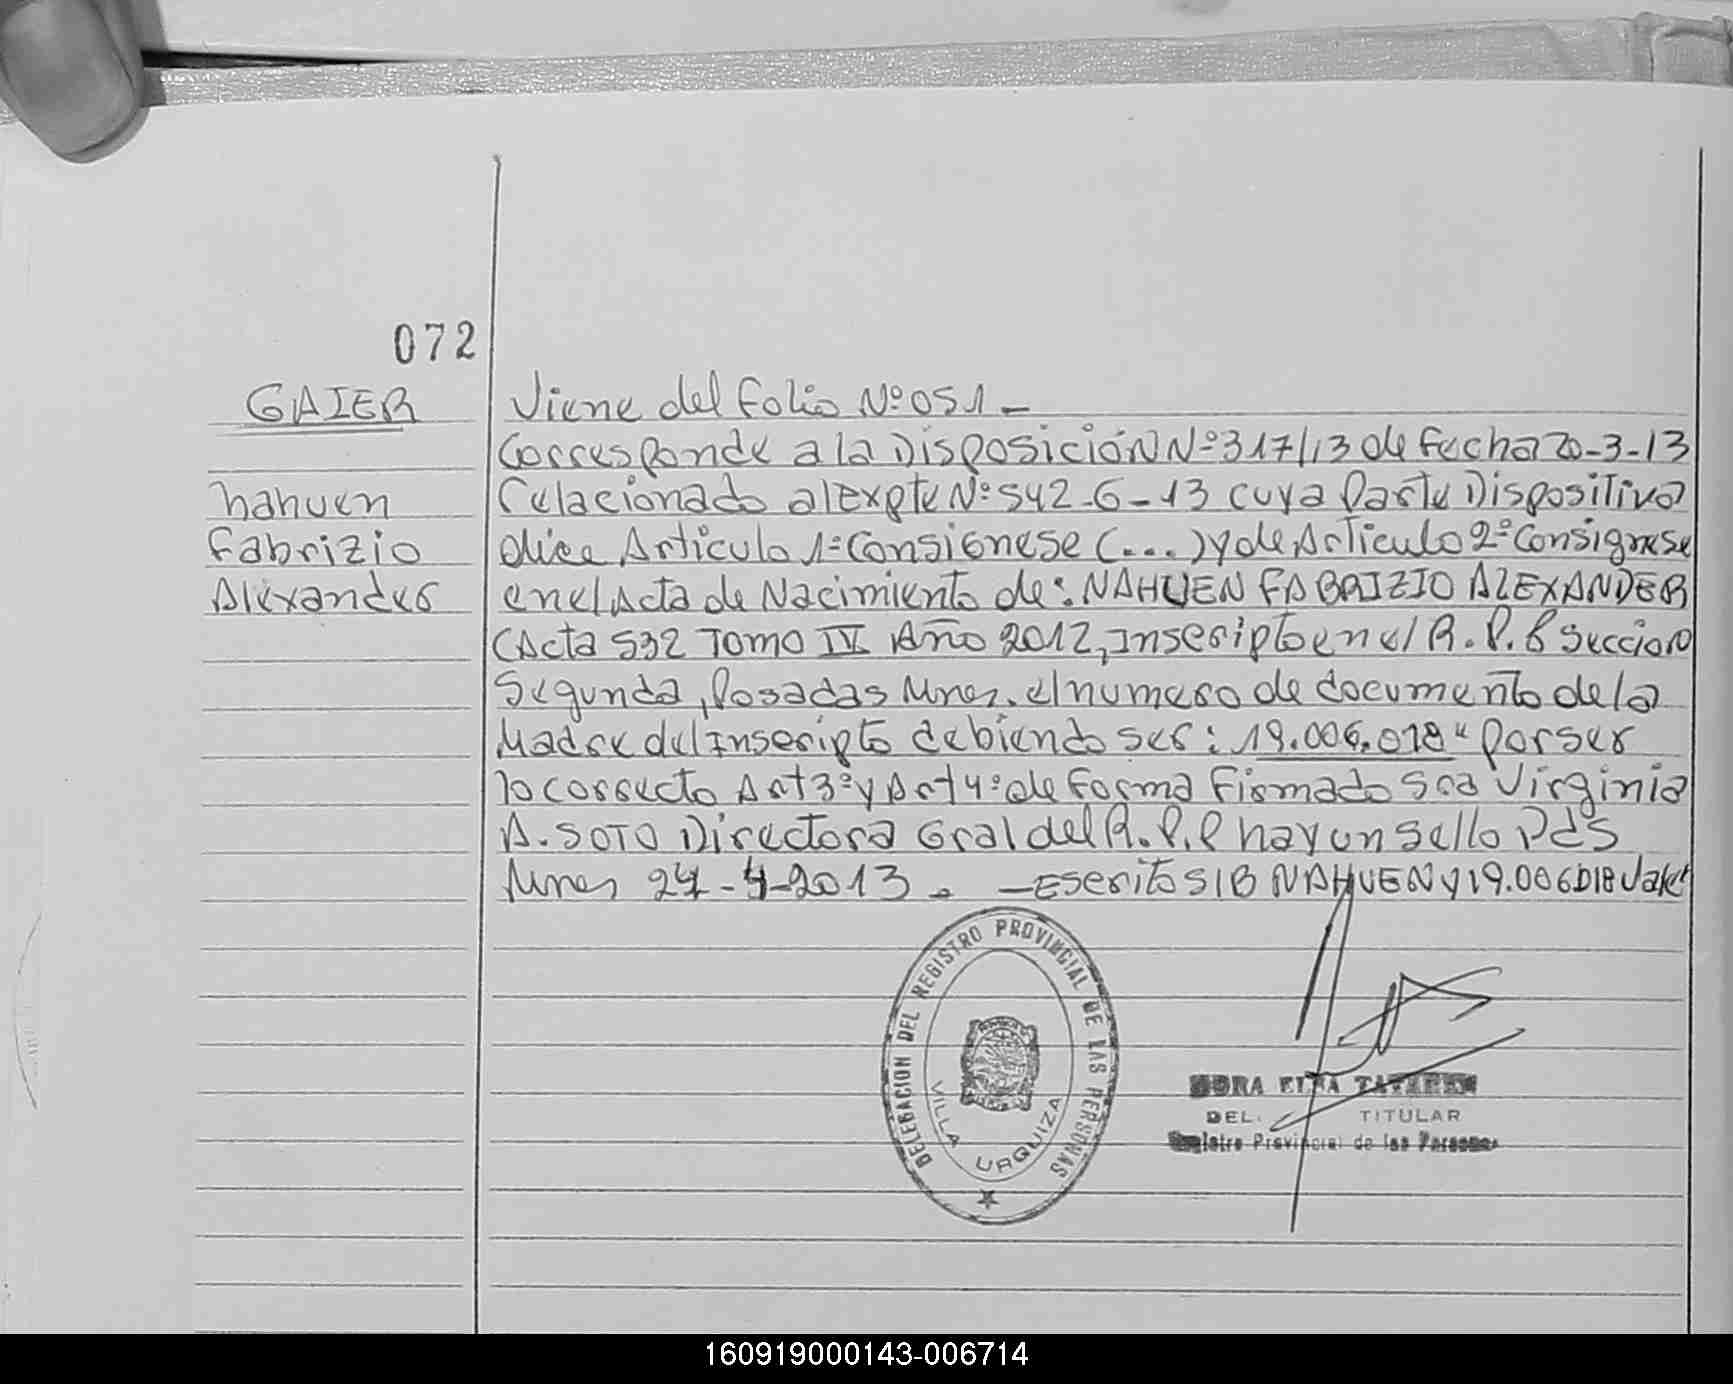 072
GAIER
Viene del folio Nº 051 -
Corresponde a la Disposición Nº 317/13 de fecha 20-3-13
nahuen
relacionado al Expte Nº 542-G-13 cuya Parte Dispositiva
fabrizio
dice Articulo 1º Consignese (...) y de Articulo 2º Consignese
Alexander
en el Acta de Nacimiento de: NAHUEN FABRIZIO ALEXANDER
(Acta 532 Tomo IV Año 2012, Inscripto en el R.P.P Seccion
Segunda, Posadas Mnes. el numero de documento de la
Madre del Inscripto debiendo ser: 19.006.018" por ser
lo correcto Art 3º y Art 4º de forma Firmado Sra Virginia
A. SOTO Directora Gral del R.P.P hay un sello Pds
Mnes 24-4-2013. - Escrito S/B NAHUEN y 19.006018 Vale
DELEGACION DEL REGISTRO PROVINCIAL DE LAS PERSONAS
VILLA URQUIZA
DEL. TITULAR
Registro Provincial de las Personas
160919000143-006714